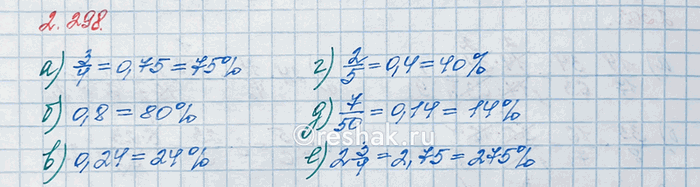 2.298.
а) 3/4 = 0,75 = 75%
б) 0,8 = 80%
в) 0,24 = 24%
г) 2/5 = 0,4 = 40%
д) 7/50 = 0,14 = 14%
е) 2 3/4 = 2,75 = 275%
©reshak.ru